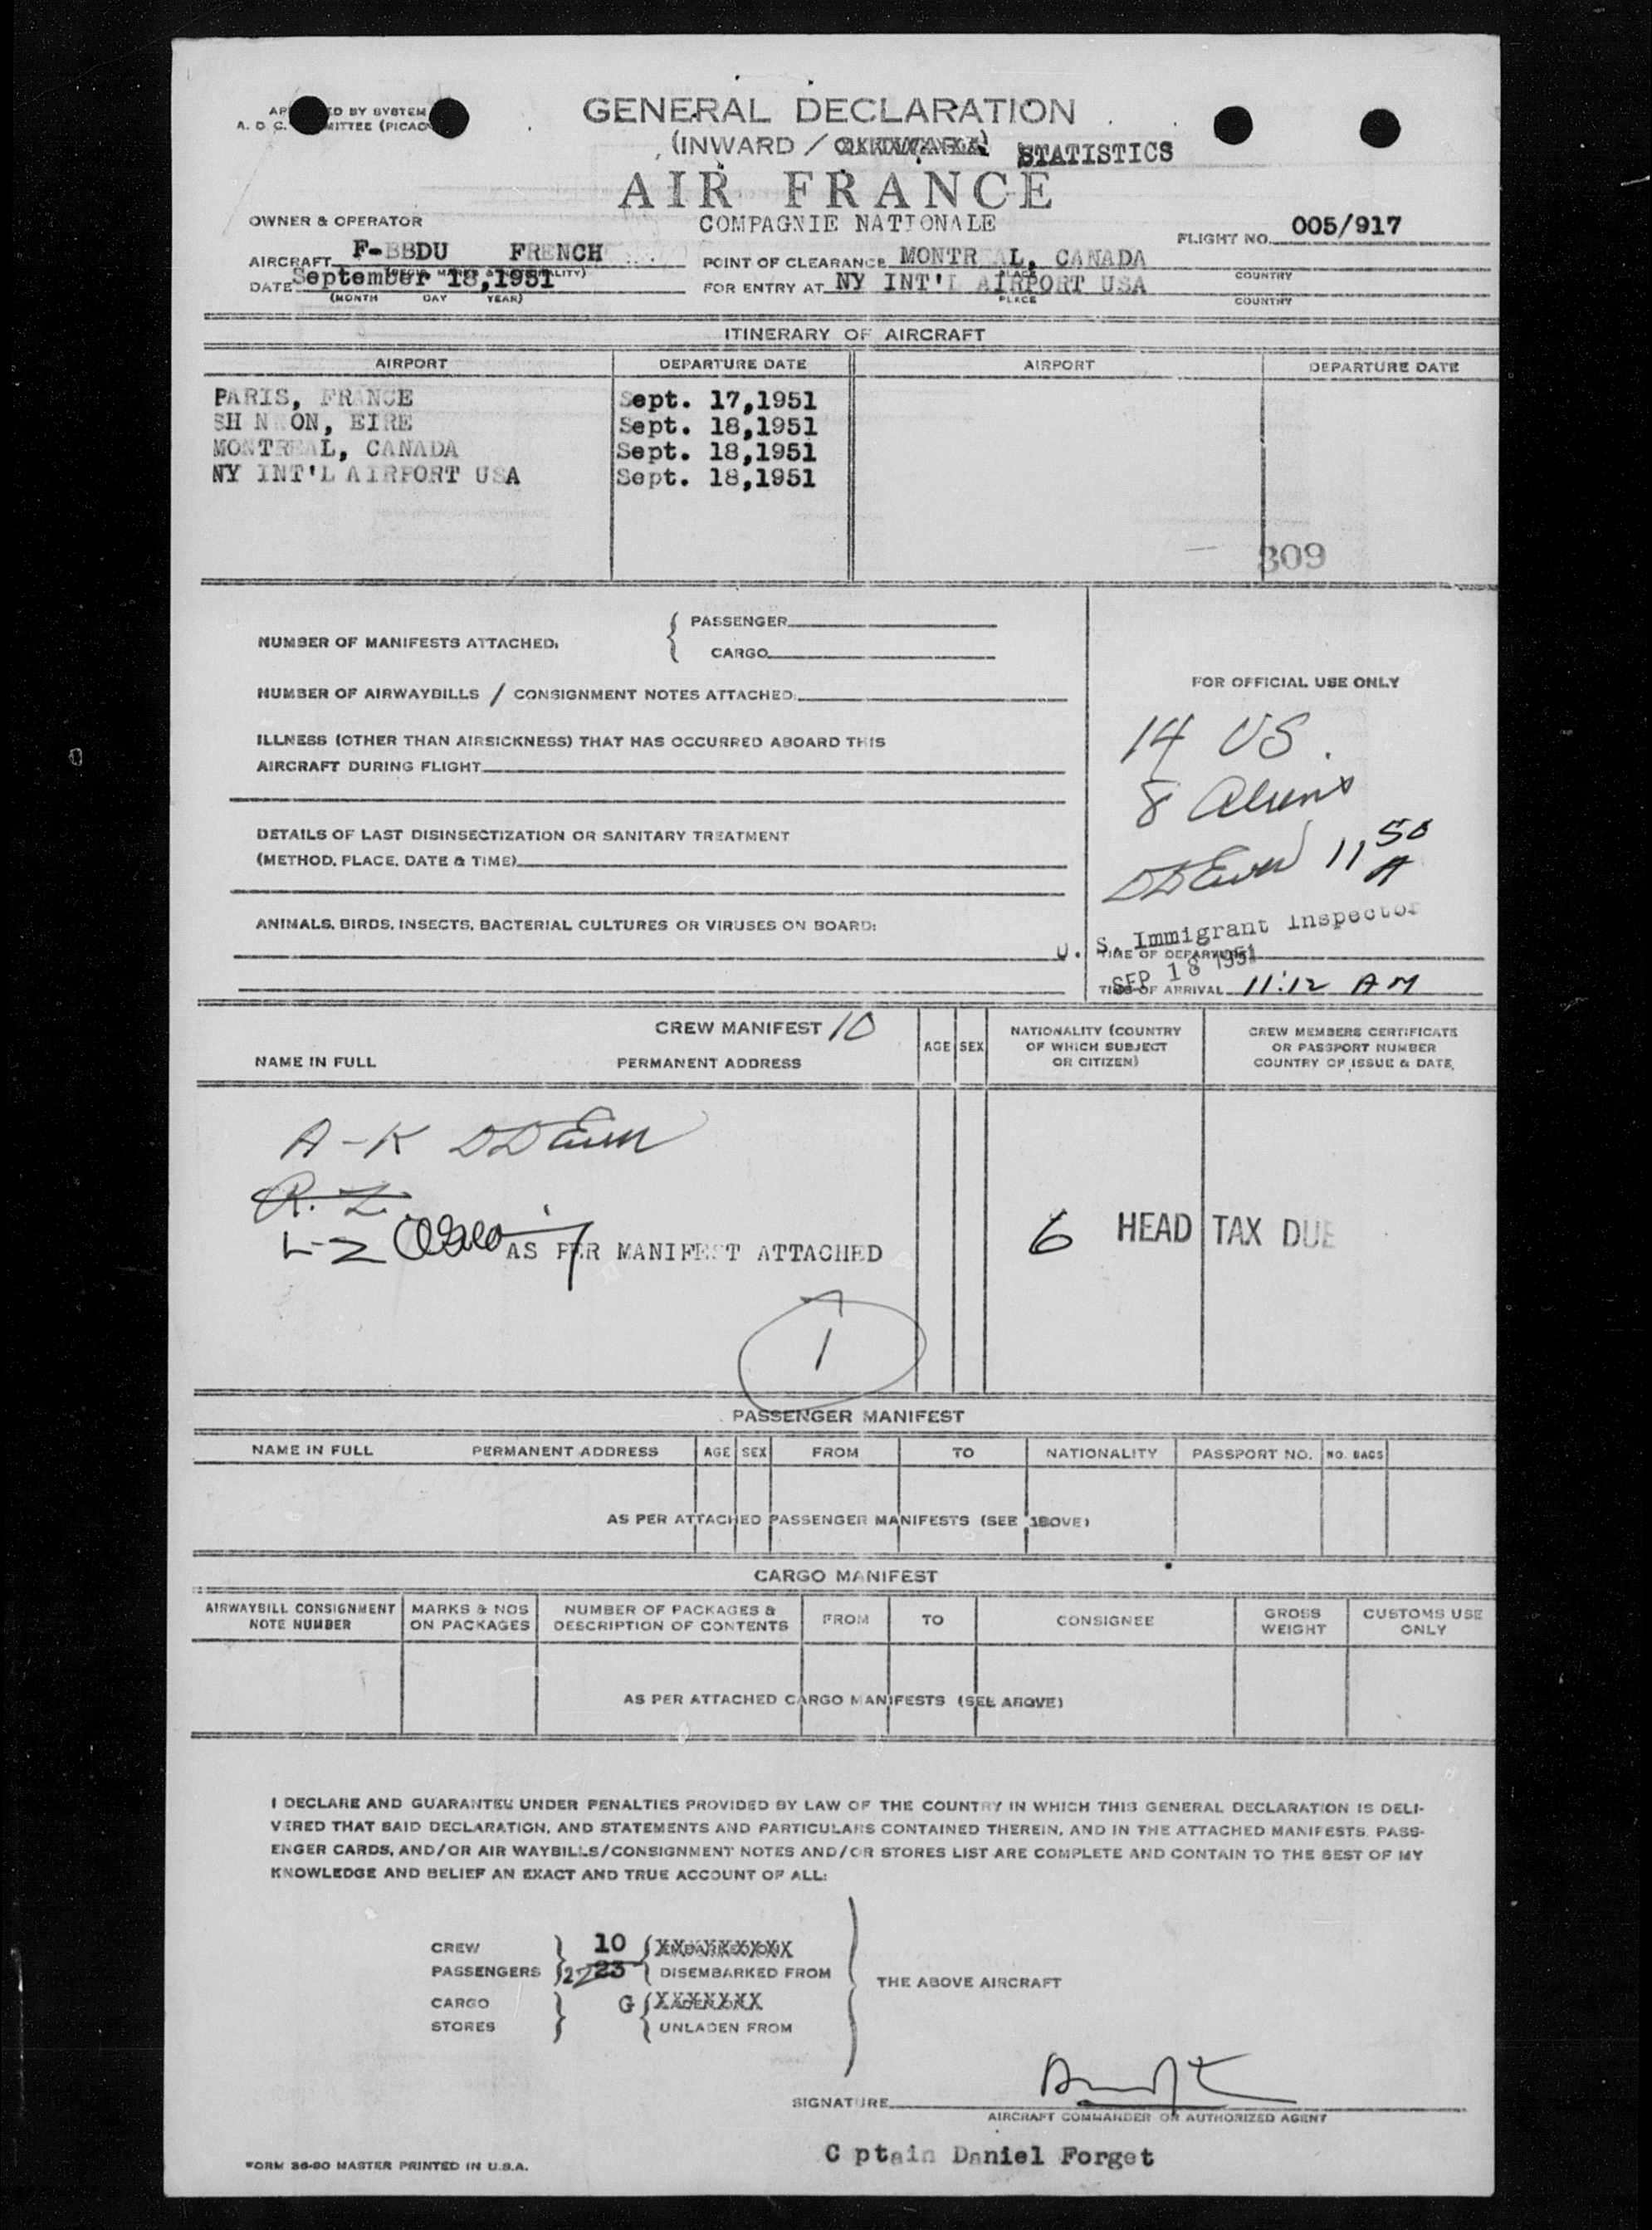 GENERAL DECLARATION
A. O. C.
(INWARD / STATISTICS
AIR FRANCE
OWNER & OPERATOR COMPAGNIE NATIONALE
FLIGHT NO. 005/917
AIRCRAFT F-BBDU FRENCH
POINT OF CLEARANCE MONTR AL, CANADA
PLACE COUNTRY
DATE September 18,1951
(MONTH DAY YEAR)
FOR ENTRY AT NY INT'L AIRPORT USA
PLACE COUNTRY
ITINERARY OF AIRCRAFT
AIRPORT DEPARTURE DATE AIRPORT DEPARTURE DATE
PARIS, FRANCE Sept. 17,1951
SH N ON, EIRE Sept. 18,1951
MONTREAL, CANADA Sept. 18,1951
NY INT'L AIRPORT USA Sept. 18,1951
309
NUMBER OF MANIFESTS ATTACHED:
PASSENGER
CARGO
NUMBER OF AIRWAYBILLS / CONSIGNMENT NOTES ATTACHED:
ILLNESS (OTHER THAN AIRSICKNESS) THAT HAS OCCURRED ABOARD THIS
AIRCRAFT DURING FLIGHT
DETAILS OF LAST DISINSECTIZATION OR SANITARY TREATMENT
(METHOD, PLACE, DATE & TIME)
ANIMALS, BIRDS, INSECTS, BACTERIAL CULTURES OR VIRUSES ON BOARD:
FOR OFFICIAL USE ONLY
14 US.
8 Aliens
11,50 A
U. S. Immigrant Inspector
TIME OF DEPARTURE
SEP 18 1951
TIME OF ARRIVAL 11:12 AM
CREW MANIFEST 10
NAME IN FULL PERMANENT ADDRESS
AGE SEX
NATIONALITY (COUNTRY
OF WHICH SUBJECT
OR CITIZEN)
CREW MEMBERS CERTIFICATE
OR PASSPORT NUMBER
COUNTRY OF ISSUE & DATE
A-K
R. Z.
L-Z
AS PER MANIFEST ATTACHED
6 HEAD TAX DUE
1
PASSENGER MANIFEST
NAME IN FULL PERMANENT ADDRESS AGE SEX FROM TO NATIONALITY PASSPORT NO. NO. BAGS
AS PER ATTACHED PASSENGER MANIFESTS (SEE ABOVE)
CARGO MANIFEST
AIRWAYBILL CONSIGNMENT
NOTE NUMBER
MARKS & NOS
ON PACKAGES
NUMBER OF PACKAGES &
DESCRIPTION OF CONTENTS
FROM TO CONSIGNEE
GROSS
WEIGHT
CUSTOMS USE
ONLY
AS PER ATTACHED CARGO MANIFESTS (SEE ABOVE)
I DECLARE AND GUARANTEE UNDER PENALTIES PROVIDED BY LAW OF THE COUNTRY IN WHICH THIS GENERAL DECLARATION IS DELI-
VERED THAT SAID DECLARATION, AND STATEMENTS AND PARTICULARS CONTAINED THEREIN, AND IN THE ATTACHED MANIFESTS, PASS-
ENGER CARDS, AND/OR AIR WAYBILLS/CONSIGNMENT NOTES AND/OR STORES LIST ARE COMPLETE AND CONTAIN TO THE BEST OF MY
KNOWLEDGE AND BELIEF AN EXACT AND TRUE ACCOUNT OF ALL:
CREW 10 XXXXXXXXX
PASSENGERS 22 23 DISEMBARKED FROM
THE ABOVE AIRCRAFT
CARGO G XXXXXXX
STORES UNLADEN FROM
SIGNATURE
AIRCRAFT COMMANDER OR AUTHORIZED AGENT
C ptain Daniel Forget
FORM 36-90 MASTER PRINTED IN U.S.A.